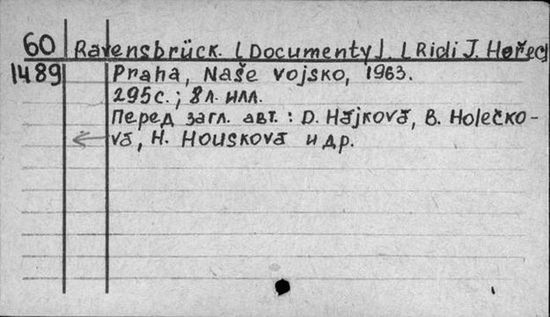 60 Ravensbrück. [Documenty]. [Ridi J. Hořec]
1489 Praha, Naše vojsko, 1963.
295с.; 8л. илл.
Перед загл. авт.: D. Hájková, B. Holečko-
vá, H. Housková и др.